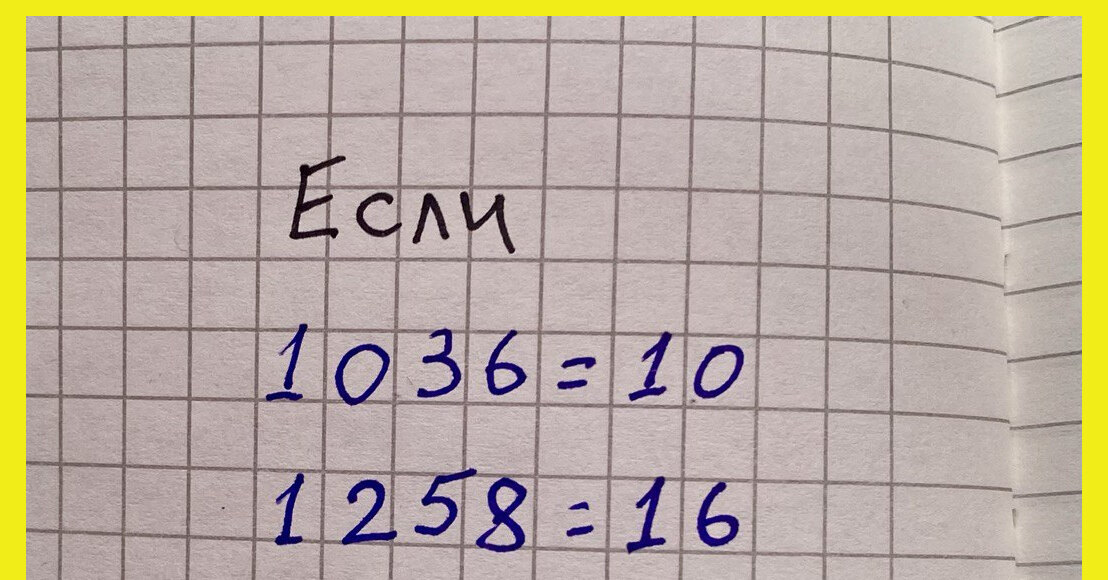 Если
1036=10
1258=16